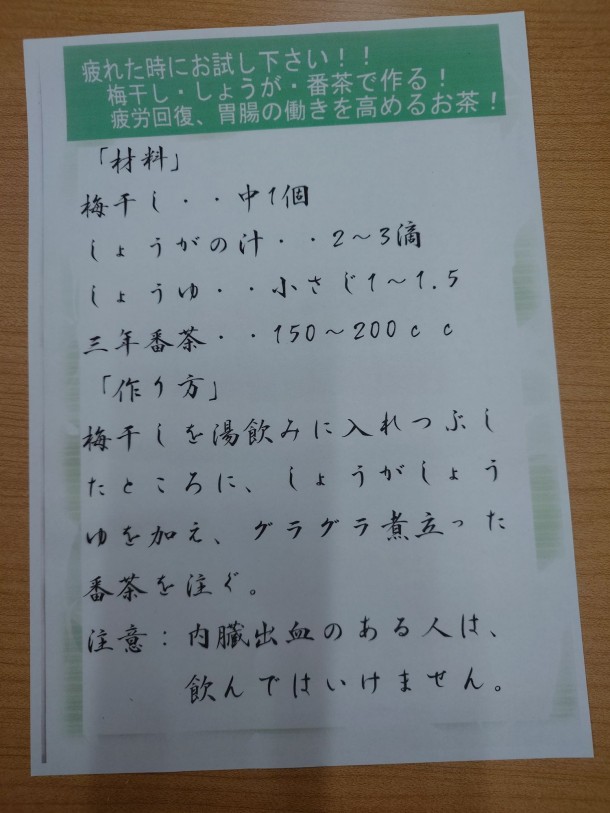 疲れた時にお試し下さい！！
梅干し・しょうが・番茶で作る！
疲労回復、胃腸の働きを高めるお茶！
「材料」
梅干し・・中1個
しょうがの汁・・2～3滴
しょうゆ・・小さじ1～1.5
三年番茶・・150～200cc
「作り方」
梅干しを湯飲みに入れつぶし
たところに、しょうがしょう
ゆを加え、グラグラ煮立った
番茶を注ぐ。
注意：内臓出血のある人は、
飲んではいけません。